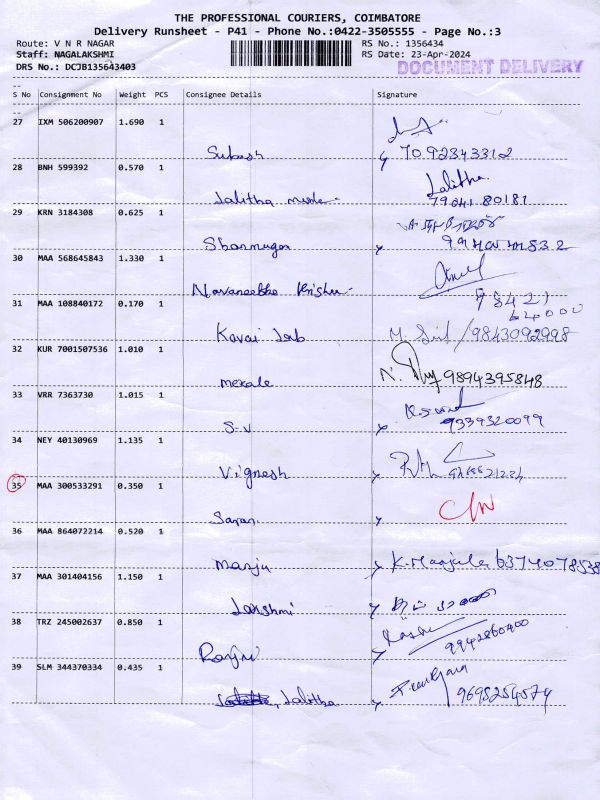 THE PROFESSIONAL COURIERS, COIMBATORE
Delivery Runsheet - P41 - Phone No.:0422-3505555 - Page No.:3
Route: V N R NAGAR
Staff: NAGALAKSHMI
DRS No.: DCJB135643403
RS No.: 1356434
RS Date: 23-Apr-2024
DOCUMENT DELIVERY
S No Consignment No Weight PCS Consignee Details Signature
27 IXM 506200907 1.690 1
Subash 7092343312
28 BNH 599392 0.570 1
Lalitha Lalitha
79041 80181
29 KRN 3184308 0.625 1
Shanmugan
30 MAA 568645843 1.330 1
Navaneetha Krishna
31 MAA 108840172 0.170 1
98421
64000
Kovai Lab M. 9843092998
32 KUR 7001507536 1.010 1
mekala N. 9894395848
33 VRR 7363730 1.015 1
S-V 9339320099
34 NEY 40130969 1.135 1
Vignesh
35 MAA 300533291 0.350 1
Saran
36 MAA 864072214 0.520 1
Manju K. Manjula 6374078538
37 MAA 301404156 1.150 1
Lakshmi
38 TRZ 245002637 0.850 1
Ranju 9942860400
39 SLM 344370334 0.435 1
Lalitha 9695254574